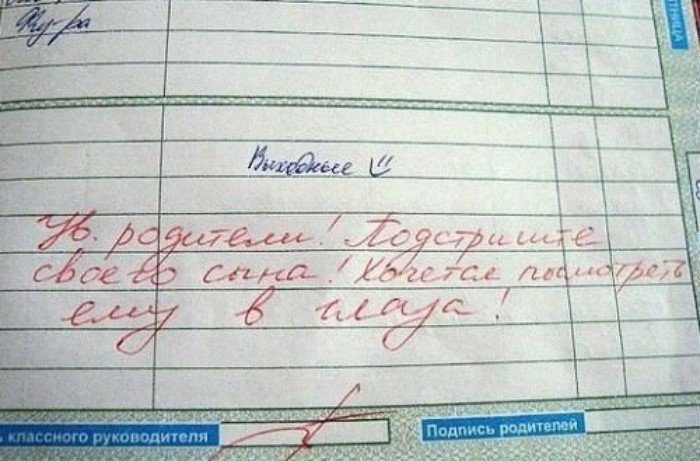 Физ-ра
ТНИЦА
Выходные
Ув. родители! Подстригите
своего сына! Хочется посмотреть
ему в глаза!
ь классного руководителя
Подпись родителей